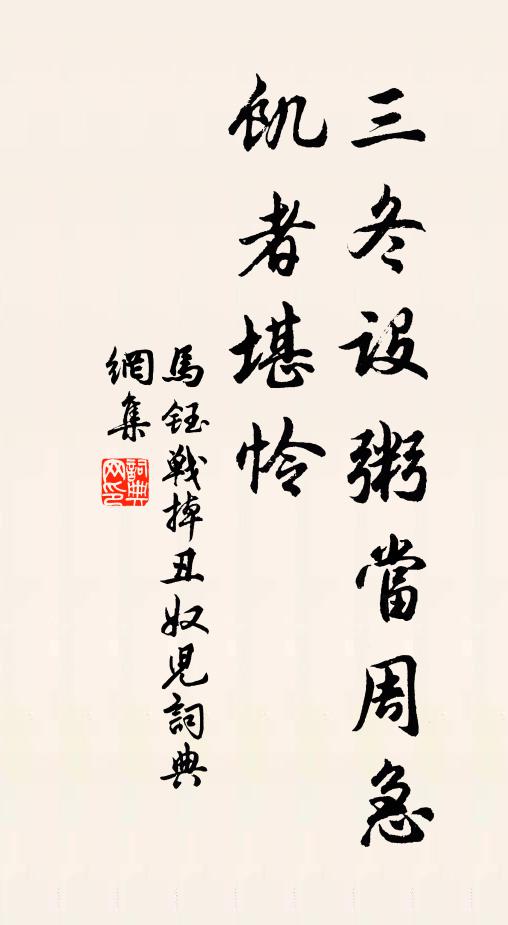 三冬設粥當周急
飢者堪怜
馬鈺戰掉丑奴兒詞典
網集
詞典
网印